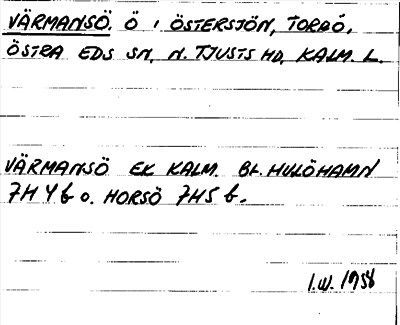 VÄRMANSÖ. Ö I ÖSTERSJÖN, TORRÖ,
ÖSTRA EDS SN, N. TJUSTS HD, KALM. L.
VÄRMANSÖ EK KALM. BL. HULÖHAMN
7H 4 b o. HORSÖ 7H5 b.
I.W. 1958